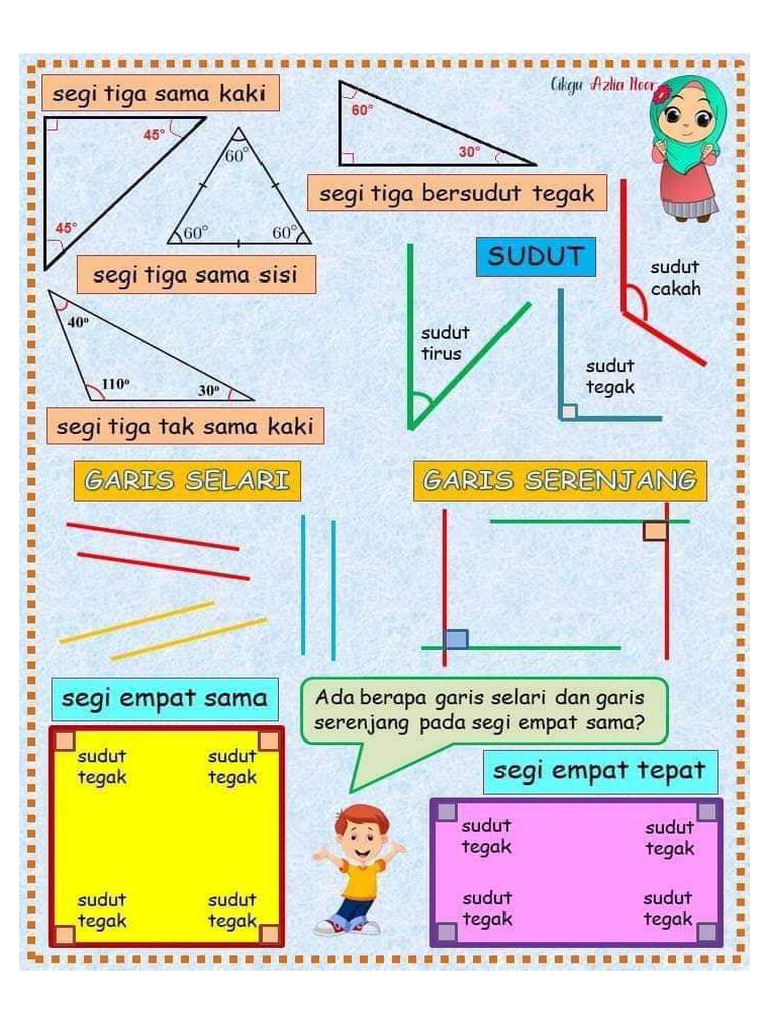 Cikgu Azlia Noor
segi tiga sama kaki
45°
45°
60°
60°
60°
segi tiga sama sisi
60°
30°
segi tiga bersudut tegak
SUDUT
sudut
cakah
sudut
tirus
sudut
tegak
40º
110º
30º
segi tiga tak sama kaki
GARIS SELARI
GARIS SERENJANG
segi empat sama
Ada berapa garis selari dan garis
serenjang pada segi empat sama?
sudut
tegak
sudut
tegak
sudut
tegak
sudut
tegak
segi empat tepat
sudut
tegak
sudut
tegak
sudut
tegak
sudut
tegak